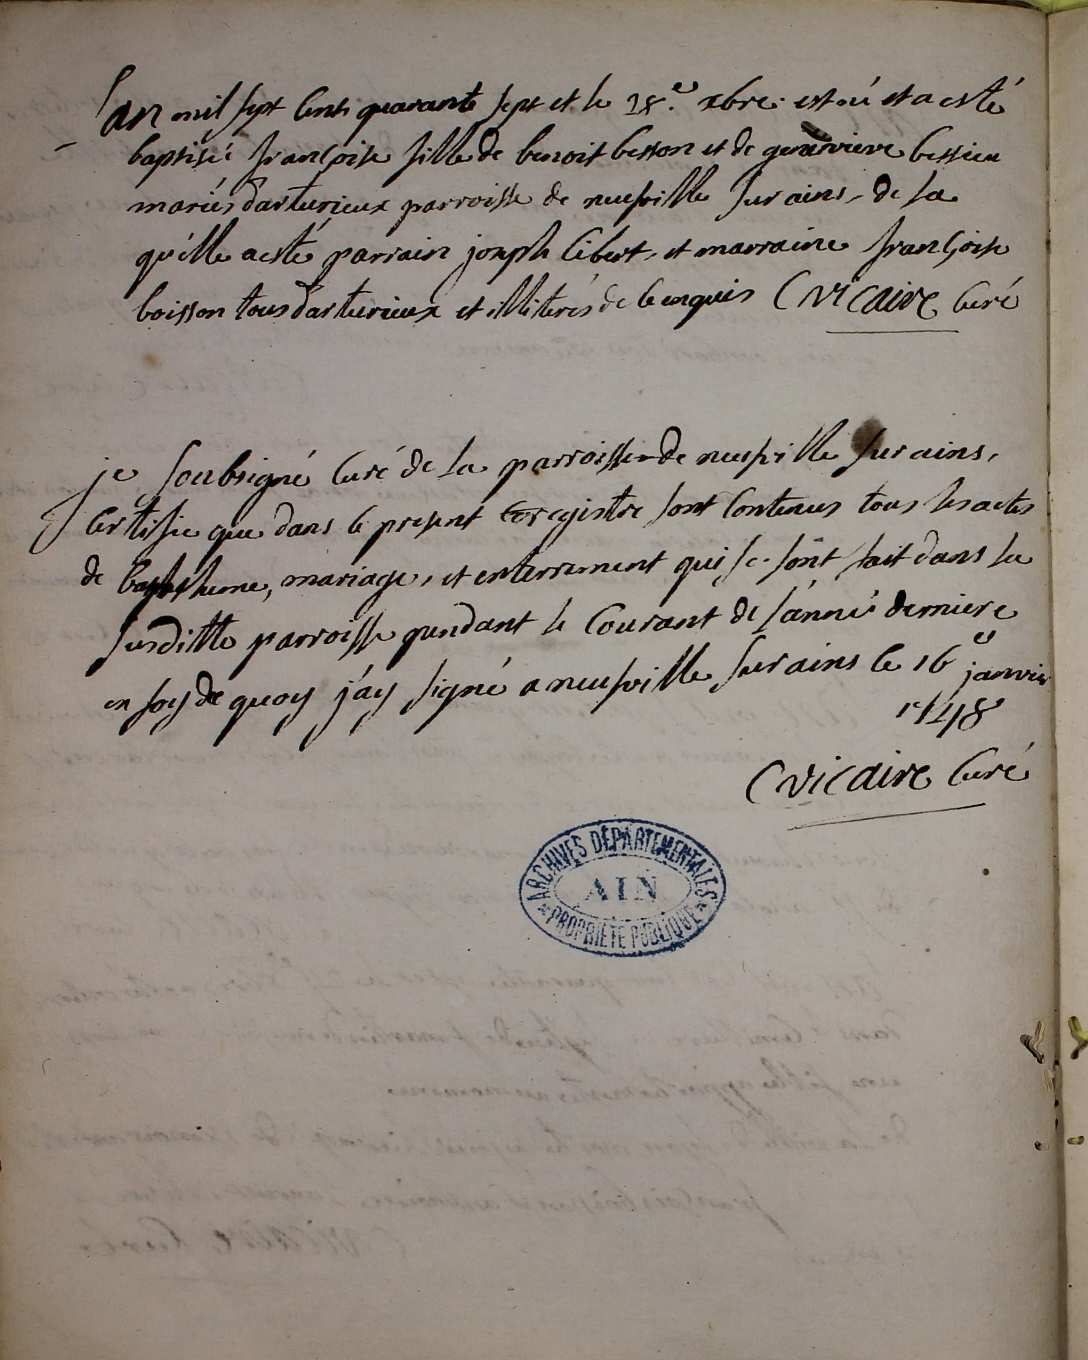 L'an mil sept cent quarante sept et le 28.e xbre est né et a esté
baptisée françoise fille de benoit besson et de genevieve bessieu
mariés d'arturieux parroisse de neufville sur ains, de la
quelle a esté parrain joseph Cibert, et marraine françoise
boisson tous d'arturieux et illiterés de ce enquis C vicaire Curé
je soubsigné Curé de la parroisse de neufville sur ains,
Certifie que dans le present registre sont Contenus tous les actes
de baptheme, mariage, et enterrement qui se sont fait dans la
susditte parroisse pendant le Courant de l'anné derniere
en foy de quoy j'ay signé a neufville sur ains le 16e janvier
1748
C vicaire Curé
ARCHIVES DÉPARTEMENTALES
AIN
PROPRIÉTÉ PUBLIQUE